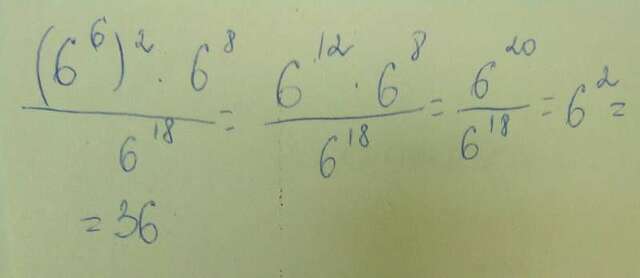 (6⁶)² · 6⁸ / 6¹⁸ = 6¹² · 6⁸ / 6¹⁸ = 6²⁰ / 6¹⁸ = 6² =
= 36